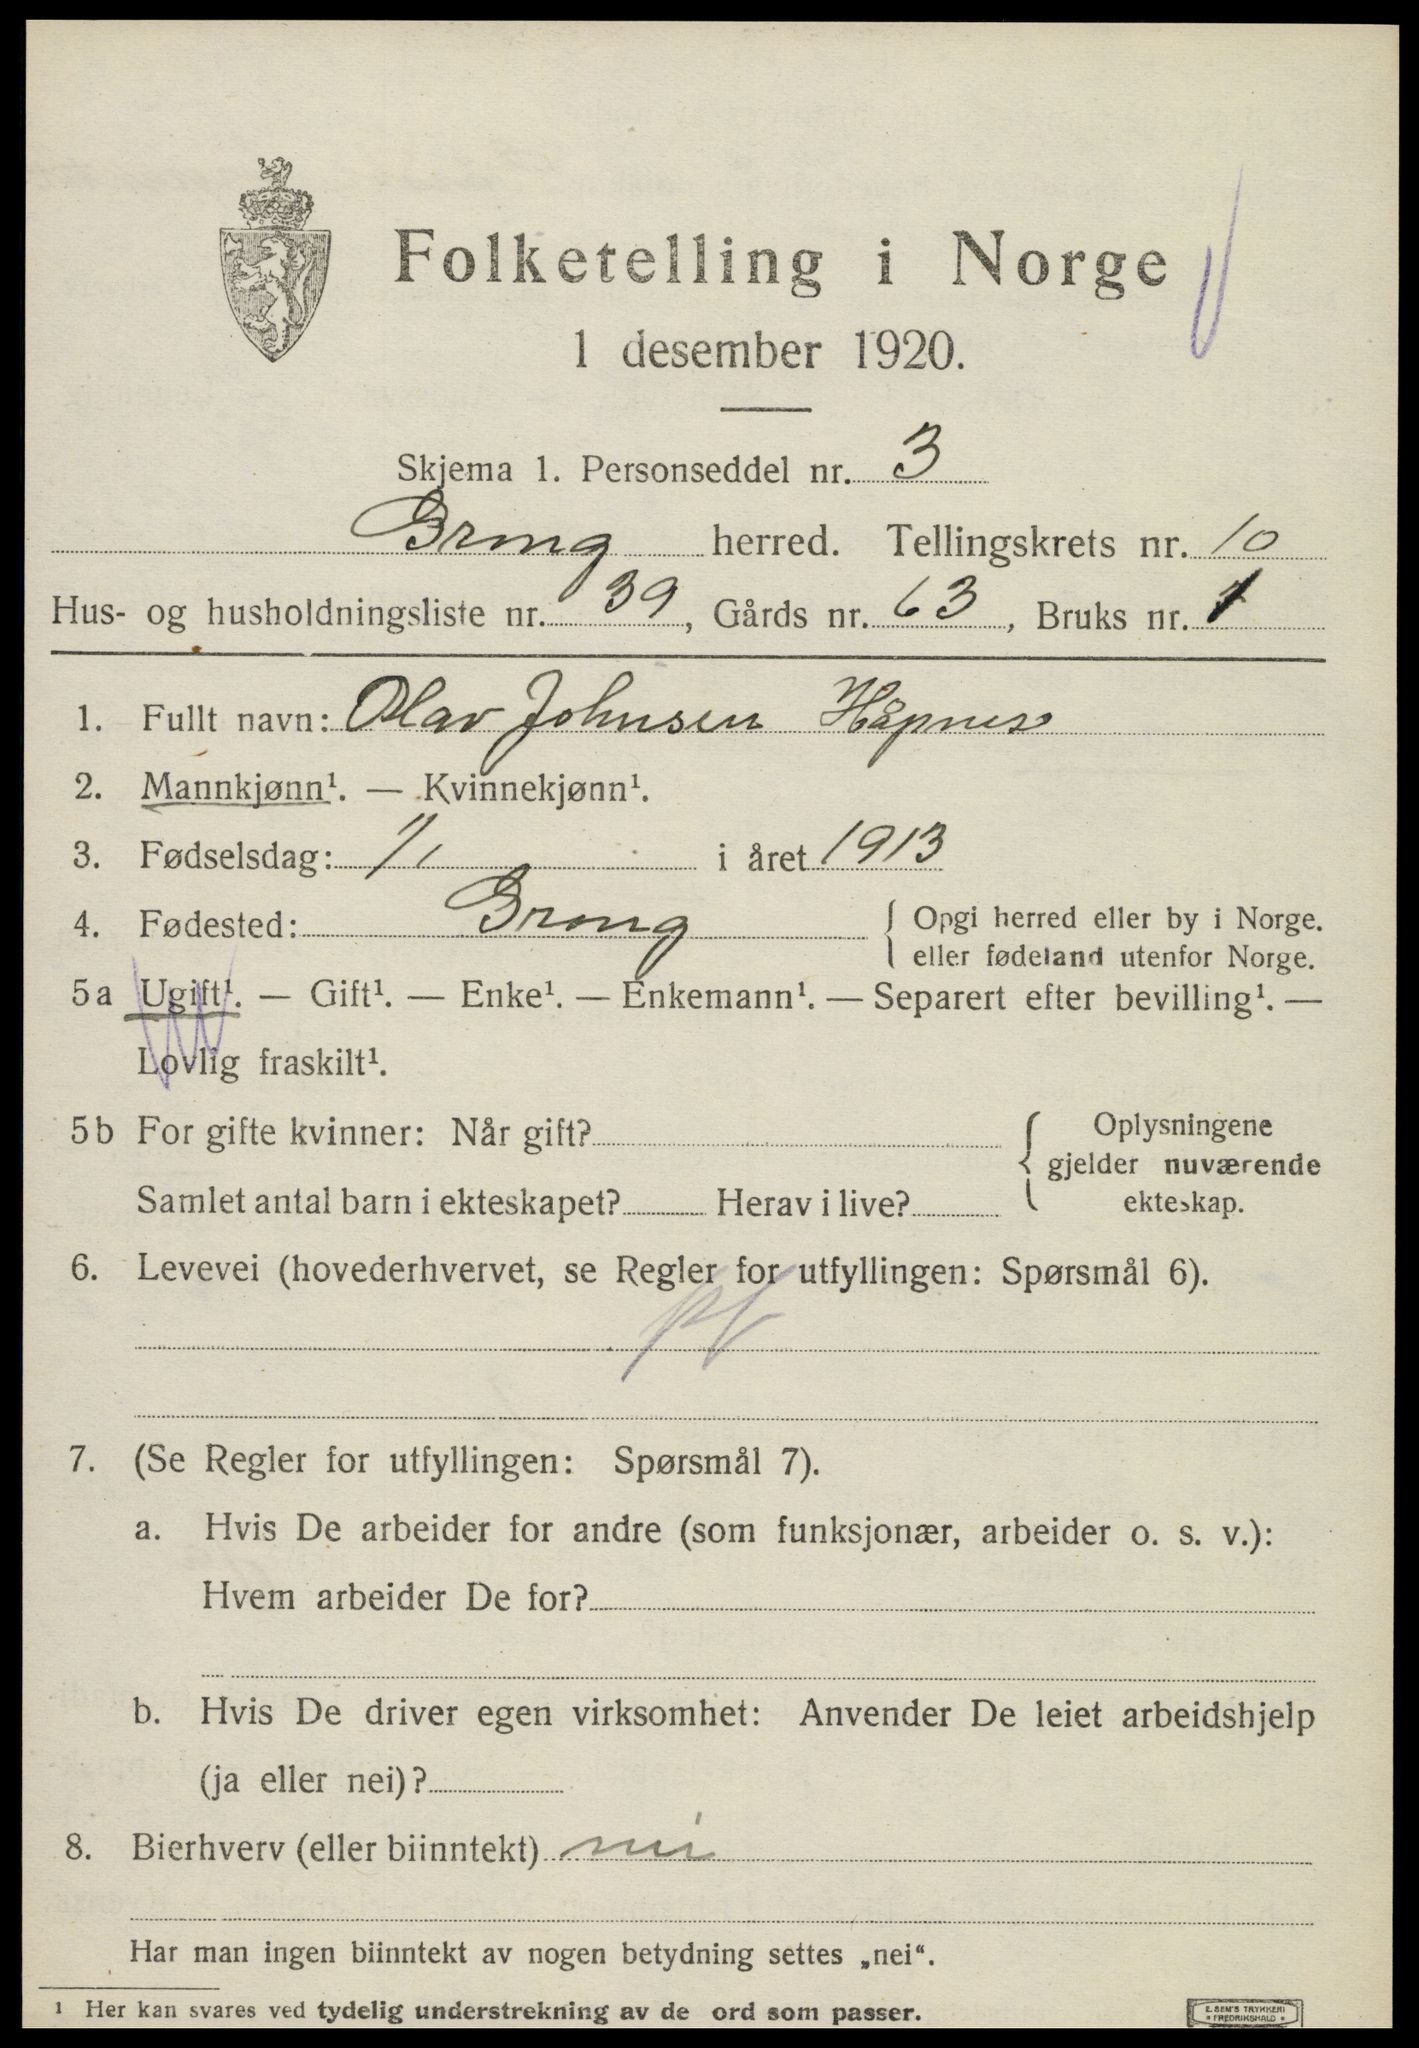 Folketelling i Norge
1 desember 1920.
Skjema 1. Personseddel nr. 3
Grong herred. Tellingskrets nr. 10
Hus- og husholdningsliste nr. 39, Gårds nr. 63, Bruks nr. 1
1. Fullt navn: Olav Johnsen Håpnes
2. Mannkjønn¹. — Kvinnekjønn¹.
3. Fødselsdag: 1/1 i året 1913
4. Fødested: Grong { Opgi herred eller by i Norge.
eller fødeland utenfor Norge.
5a Ugift¹. — Gift¹. — Enke¹. — Enkemann¹. — Separert efter bevilling¹. —
Lovlig fraskilt¹.
5b For gifte kvinner: Når gift?
Samlet antal barn i ekteskapet? Herav i live?
Oplysningene
gjelder nuværende
ekteskap.
6. Levevei (hovederhvervet, se Regler for utfyllingen: Spørsmål 6).
7. (Se Regler for utfyllingen: Spørsmål 7).
a. Hvis De arbeider for andre (som funksjonær, arbeider o. s. v.):
Hvem arbeider De for?
b. Hvis De driver egen virksomhet: Anvender De leiet arbeidshjelp
(ja eller nei)?
8. Bierhverv (eller biinntekt) nei
Har man ingen biinntekt av nogen betydning settes „nei“.
¹ Her kan svares ved tydelig understrekning av de ord som passer.
E. SEM'S TRYKKERI
• FREDRIKSHALD •